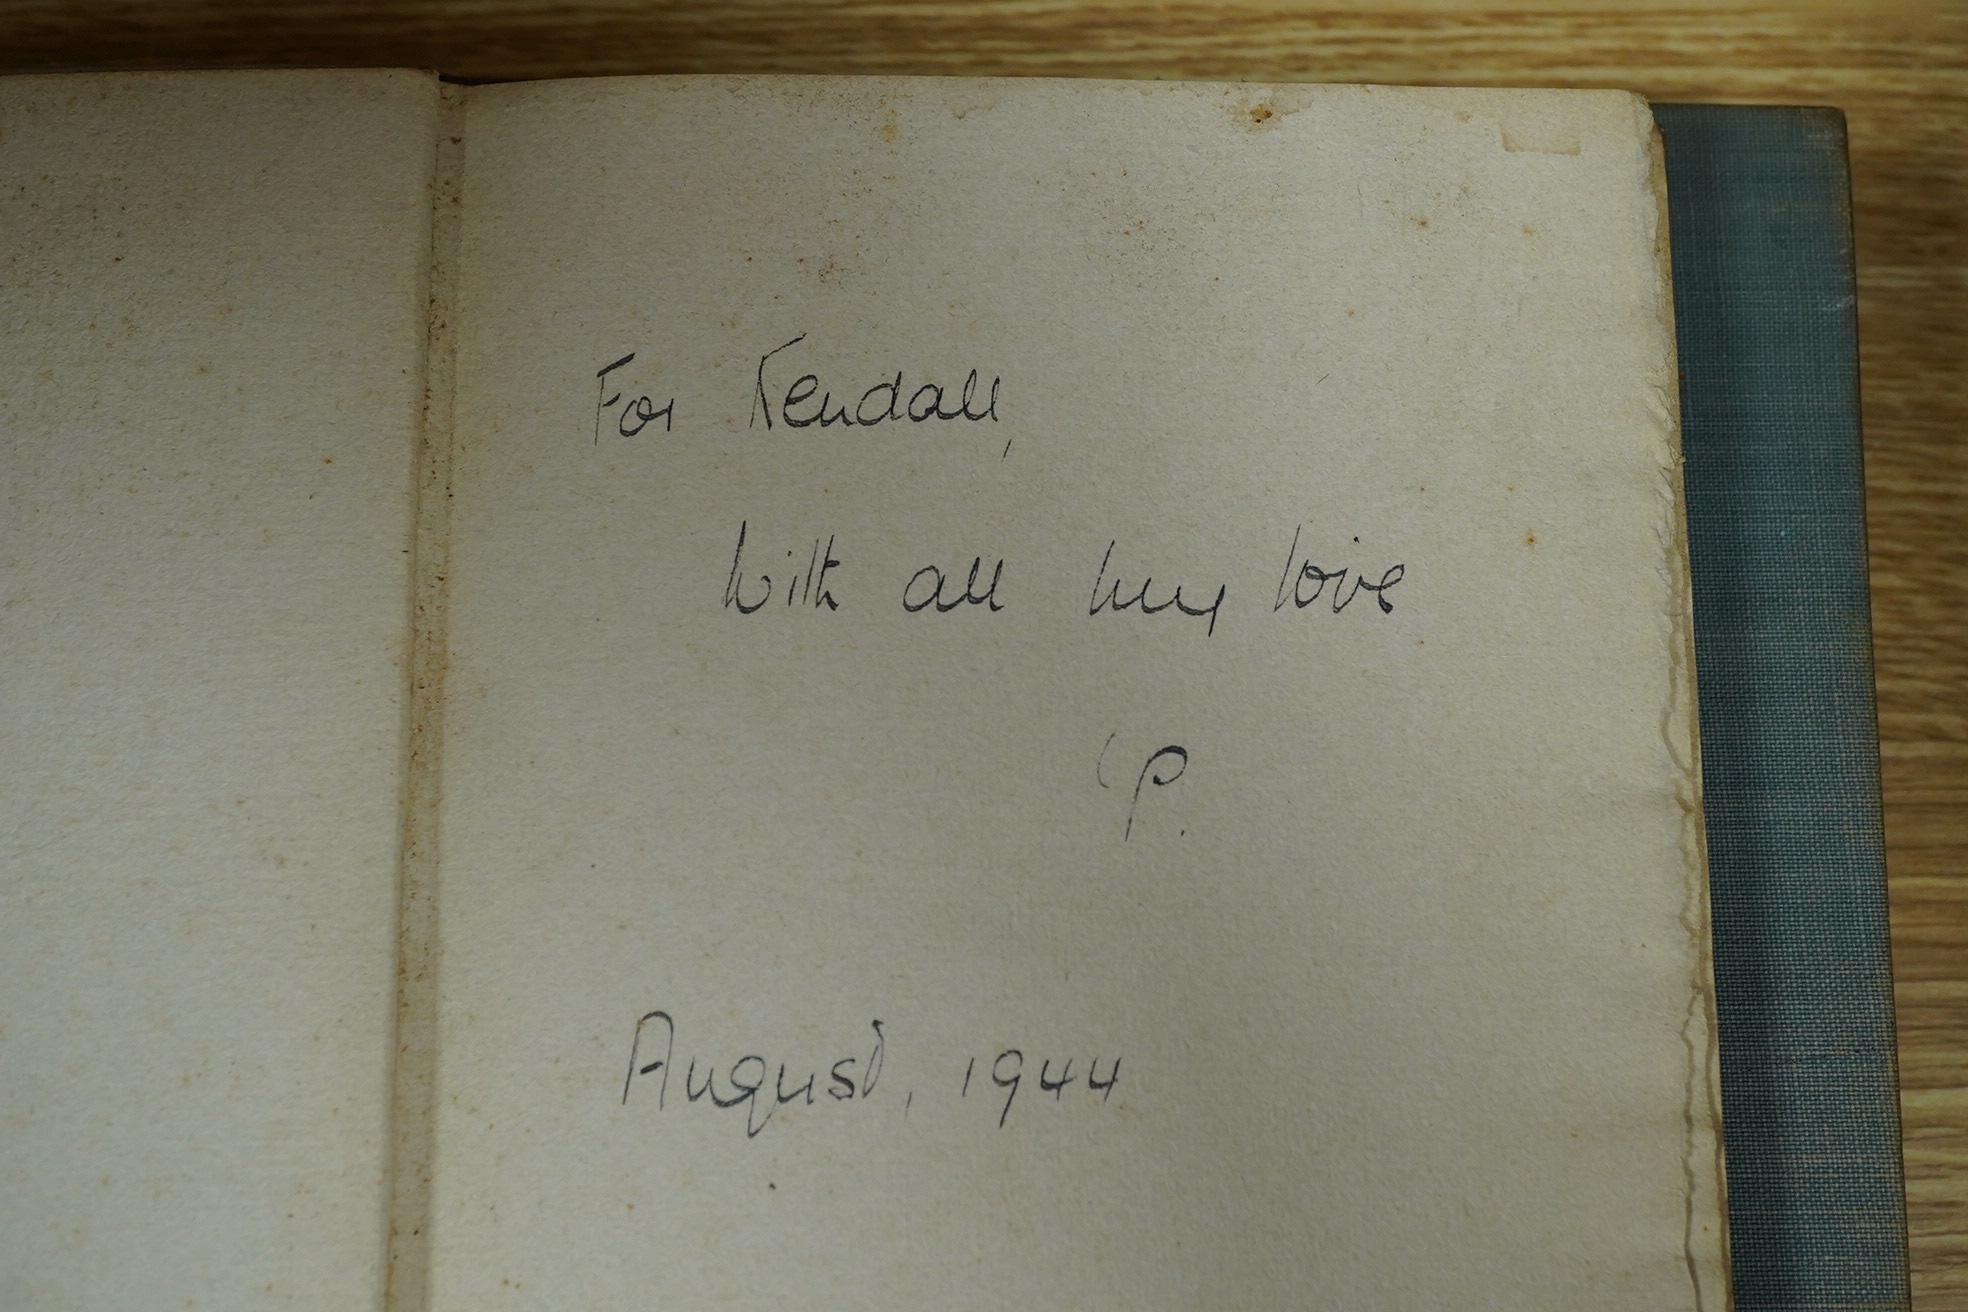 For Kendall,
With all my love
P.
August, 1944